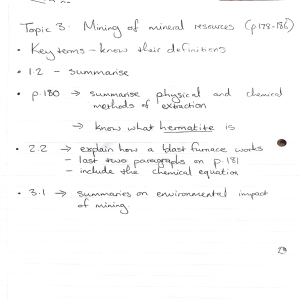 Topic 3: Mining of mineral resources (p178-186)
• Key terms - know their definitions
• 1.2 - summarise
• p.180 → summarise physical and chemical
methods of extraction
→ know what hermatite is
• 2.2 → explain how a blast furnace works
- last two paragraphs on p.181
- include the chemical equation
• 3.1 → summaries on environmental impact
of mining.